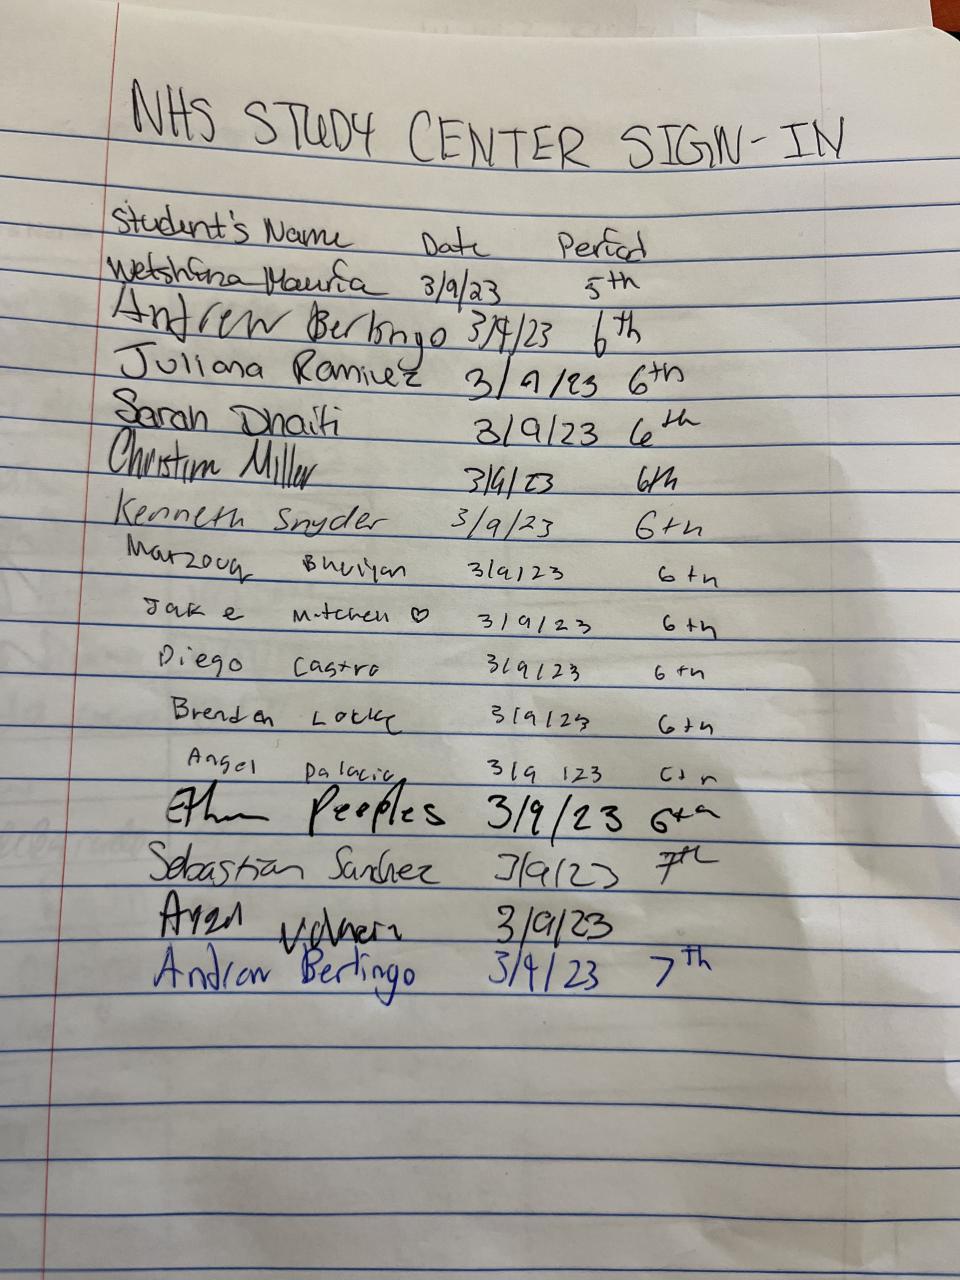 NHS STUDY CENTER SIGN-IN
Student's Name Date Period
3/9/23 5th
Andrew Bertingo 3/9/23 6th
Juliana Ramirez 3/9/23 6th
Sarah Dhaiti 3/9/23 6th
Miller 3/9/23 6th
Kenneth Snyder 3/9/23 6th
Marzouq Bhuiyan 3/9/23 6th
Jake Mitchell ♡ 3/9/23 6th
Diego Castro 3/9/23 6th
Brenden Locke 3/9/23 6th
Angel Palacio 3/9/23 6th
Ethan Peeples 3/9/23 6th
Sebastian Sanchez 3/9/23 7th
Angel 3/9/23
Andrew Bertingo 3/9/23 7th